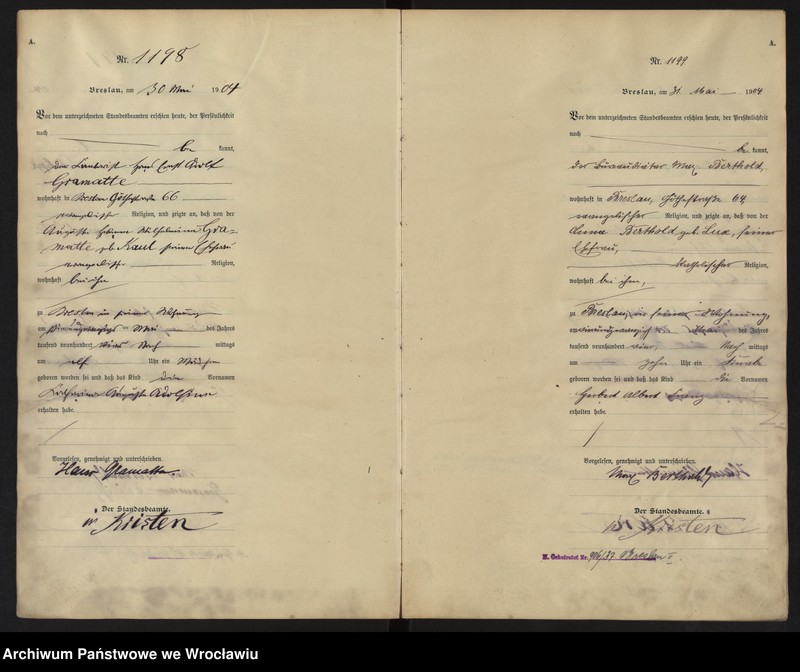 A.
Nr. 1198
Breslau, am 30. Mai 1904
Vor dem unterzeichneten Standesbeamten erschien heute, der Persönlichkeit
nach
be kannt,
der Landwirt Ernst Adolf
Gramatte
wohnhaft in Breslau Göthestraße 66
evangelischer Religion, und zeigte an, daß von der
Auguste Wilhelmine Gra-
matte geb. Kaul seiner Ehefrau
evangelischer Religion,
wohnhaft bei ihm
zu Breslau in seiner Wohnung
am Mai des Jahres
tausend neunhundert vier Nach mittags
um elf Uhr ein Mädchen
geboren worden sei und daß das Kind die Vornamen
Auguste Adolfine
erhalten habe.
Vorgelesen, genehmigt und unterschrieben.
Hans Gramatte.
Der Standesbeamte.
Kristen
A.
Nr. 1199
Breslau, am 31. Mai 1904
Vor dem unterzeichneten Standesbeamten erschien heute, der Persönlichkeit
nach
be kannt,
der Bureaudiätar Max Berthold,
wohnhaft in Breslau, Göthestraße 64
evangelischer Religion, und zeigte an, daß von der
Berthold geb. Lux, seiner
Ehefrau,
katholischer Religion,
wohnhaft bei ihm,
zu Breslau, in seiner Wohnung,
am Mai des Jahres
tausend neunhundert vier Nach mittags
um zehn Uhr ein Knabe
geboren worden sei und daß das Kind die Vornamen
Herbert Albert
erhalten habe.
Vorgelesen, genehmigt und unterschrieben.
Max Berthold
Der Standesbeamte.
Kristen
Breslau I.
Archiwum Państwowe we Wrocławiu